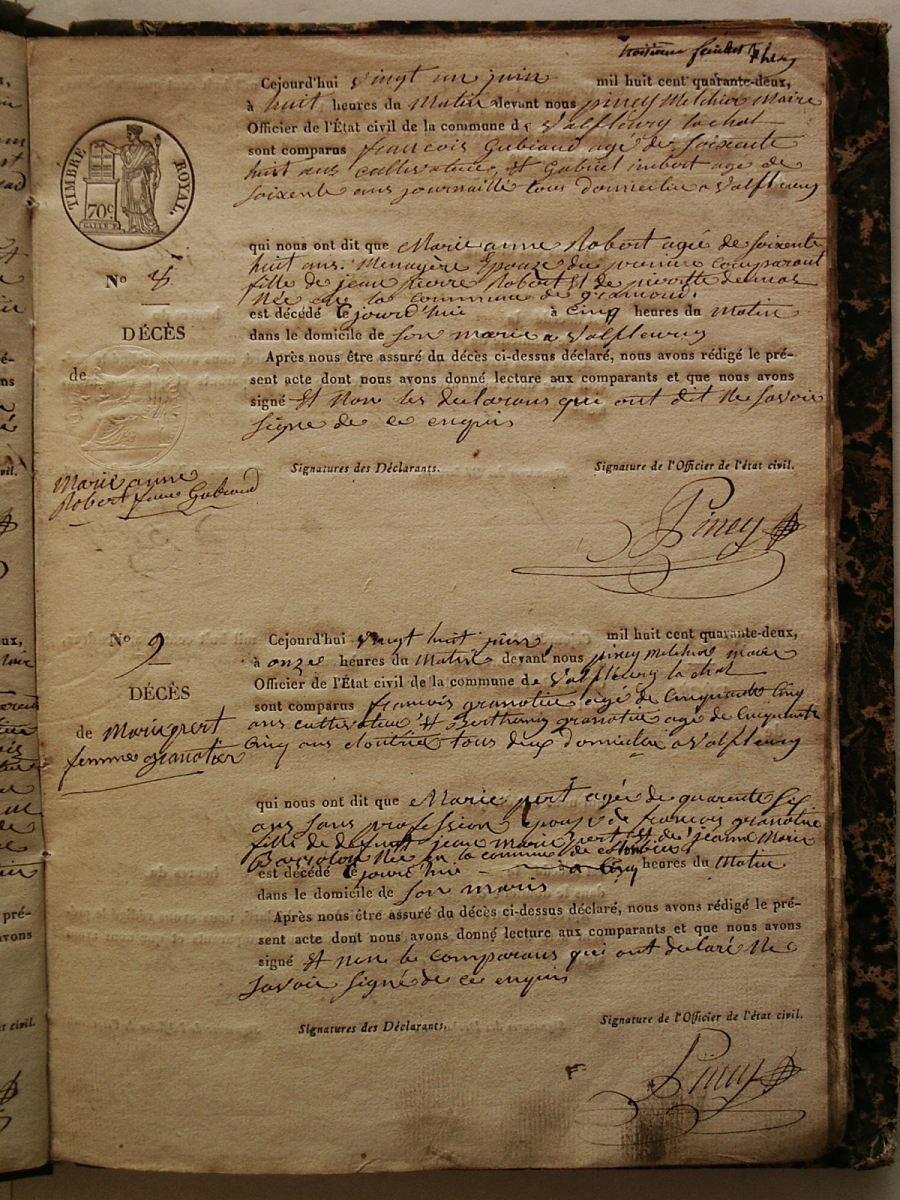 troisième feuillet
TIMBRE ROYAL.
70c
Cejourd'hui vingt un juin mil huit cent quarante-deux,
à huit heures du Matin devant nous piney Melchior Maire
Officier de l'État civil de la commune de Valfleury la chat
sont comparus francois Gubiand agé de Soixente
huit ans cultivateur, et Gabriel imbert age de
Soixente ans journaillé tous Domicilie a Valfleury
qui nous ont dit que Marie anne Robert agé de Soixente
huit ans. Menagère Epouze du premier comparant
fille de jean pierre Robert Et de pierotte
Née sur la commune de gramond.
est décédé Cejourd'huie à Cinq heures du Matin
dans le domicile de Son marie a Valfleury
No 8
DÉCÈS
de
Marie anne
Robert fme Gubiand
Après nous être assuré du décès ci-dessus déclaré, nous avons rédigé le pré-
sent acte dont nous avons donné lecture aux comparants et que nous avons
signé Et Non les declarans qui ont dit Ne Savoir
Signe de ce enquis
Signatures des Déclarants. Signature de l'Officier de l'état civil.
Piney
No 9
DÉCÈS
de Marie pert
femme granotier
Cejourd'hui vingt huit juin mil huit cent quarante-deux,
à onze heures du Matin devant nous piney melchior maire
Officier de l'État civil de la commune de Valfleury la chat
sont comparus francois granotier agé de Cinquante Cinq
ans cultivateur Et Berthomis granotier age de Cinquante
Cinq ans cloutrié tous deux Domicilie a Valfleury
qui nous ont dit que Marie pert agée de quarente Sept
ans Sans profession epouse de francois granotier
fille de defunt jean marie pert Et de jeanne Marie
Née sur la commune de
est décédé Cejourd'hui à Cinq heures du Matin
dans le domicile de Son maris
Après nous être assuré du décès ci-dessus déclaré, nous avons rédigé le pré-
sent acte dont nous avons donné lecture aux comparants et que nous avons
signé Et Non le comparans qui ont declaré Ne
Savoir Signé de ce enquis
Signatures des Déclarants. Signature de l'Officier de l'état civil.
Piney